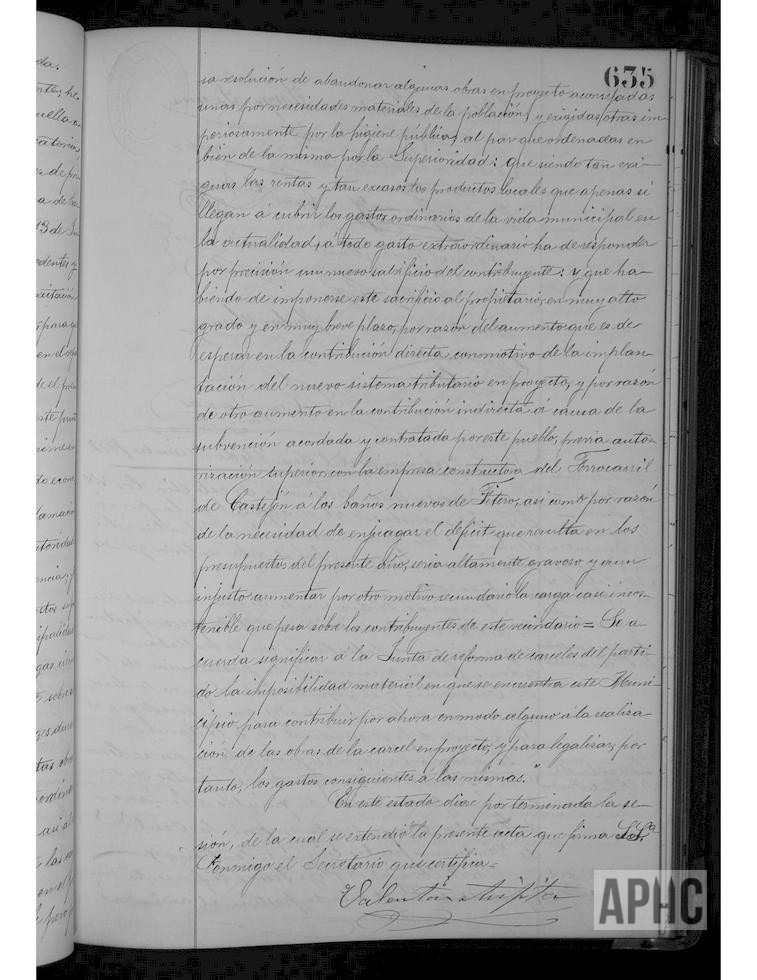 635
sa resolución de abandonar algunas obras en proyecto aconsejadas
unas por necesidades materiales de la población, y exigidas otras im-
periosamente por la higiene pública, al par que ordenadas en
bien de la misma por la Superioridad: que siendo tan exi-
guas las rentas y tan escasos los productos locales que apenas si
llegan á cubrir los gastos ordinarios de la vida municipal en
la actualidad, á todo gasto extraordinario ha de responder
por precisión un nuevo sacrificio del contribuyente: y que ha-
biendo de imponerse este sacrificio al propietario, en muy alto
grado y en muy breve plazo, por razón del aumento que es de
esperar en la contribución directa con motivo de la implan-
tación del nuevo sistema tributario en proyecto, y por razón
de otro aumento en la contribución indirecta á causa de la
subvención acordada y contratada por este pueblo, previa auto-
rización superior, con la empresa constructora del Ferrocarril
de Castejón á los baños nuevos de Fitero, asi como por razón
de la necesidad de enjuagar el déficit que resulta en los
presupuestos del presente año, seria altamente gravoso y aun
injusto aumentar por otro motivo secundario la carga casi insos-
tenible que pesa sobre los contribuyentes de este vecindario = Se a-
cuerda significar á la Junta de reforma de carceles del parti-
do la imposibilidad material en que se encuentra este Muni-
cipio para contribuir por ahora en modo alguno á la realiza-
ción de las obras de la carcel en proyecto, y para legalizar, por
tanto, los gastos consiguientes á las mismas."
En este estado diose por terminada la se-
sión, de la cual se extendió la presente acta que firma S.Sª
conmigo el Secretario que certifica=
Valentin
APHC